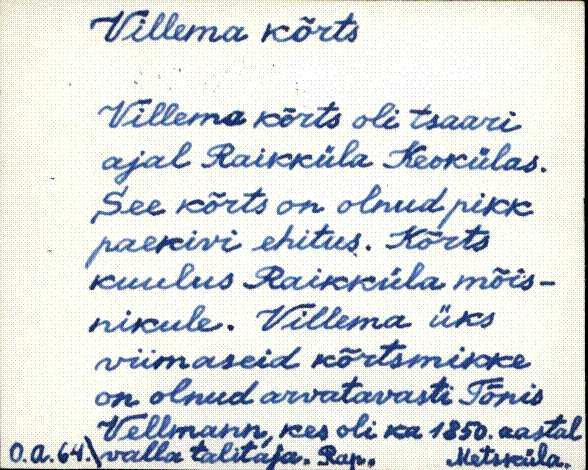 Villema kõrts
Villema kõrts oli tsaari
ajal Raikküla Keokülas.
See kõrts on olnud pikk
paekivi ehitus. Kõrts
kuulus Raikküla mõis-
nikule. Villema üks
viimaseid kõrtsmikke
on olnud arvatavasti Tõnis
Vellmann, kes oli ka 1850. aastal
O.A.64.) valla talitaja. Rap. Metsküla.